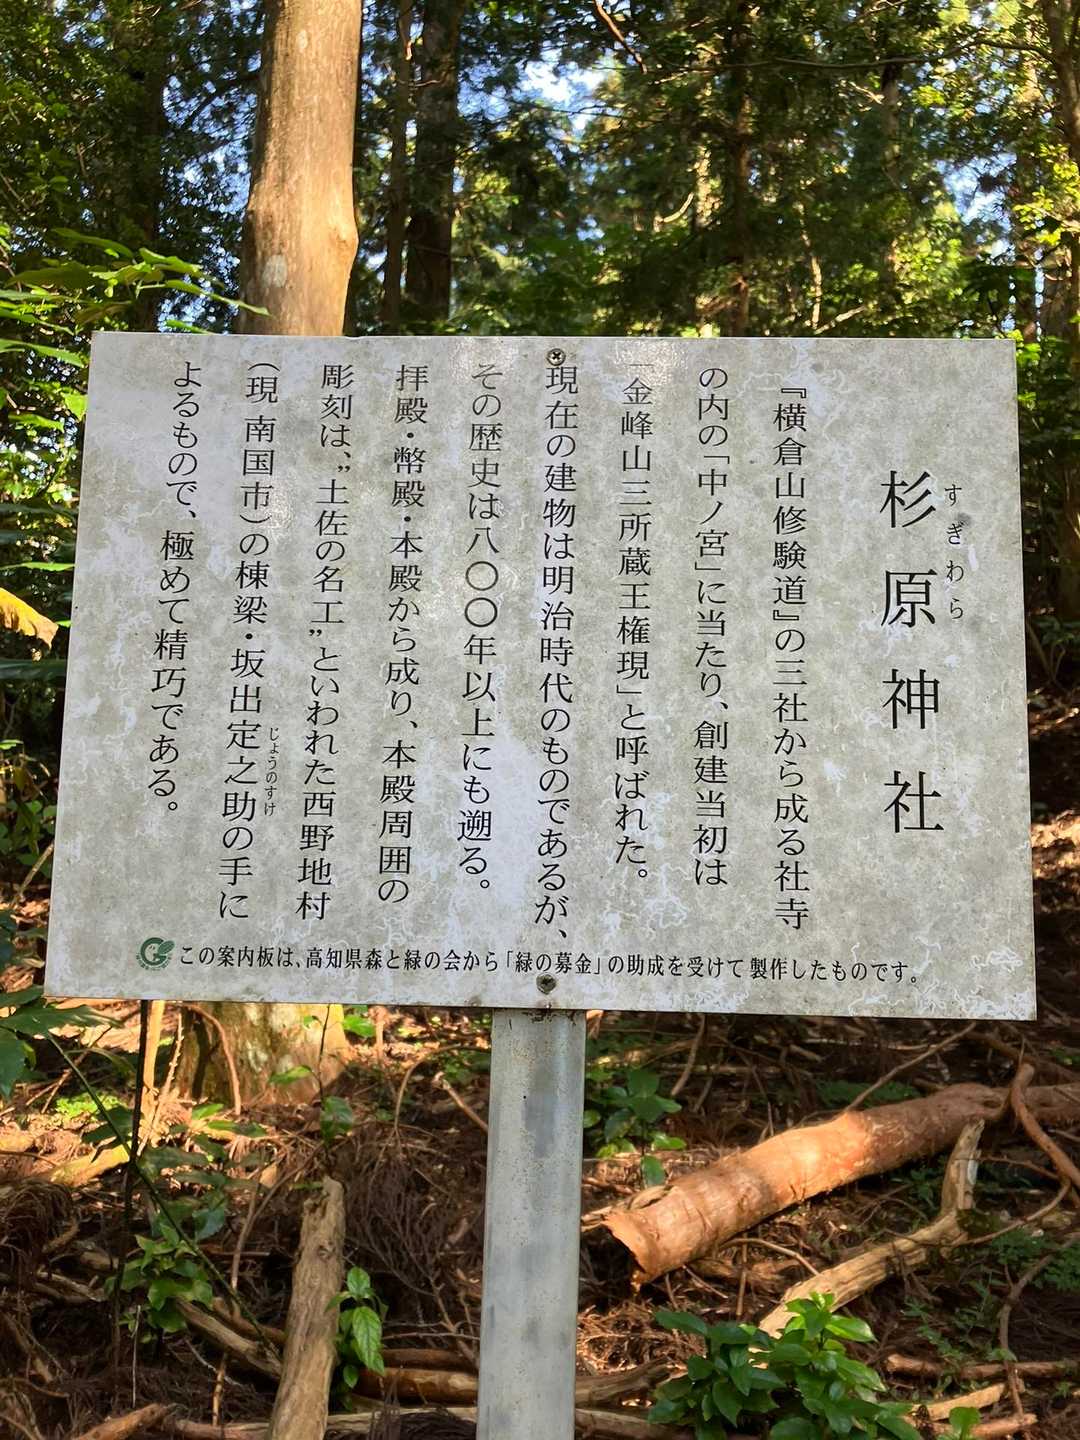 杉原神社
すぎわら
『横倉山修験道』の三社から成る社寺
の内の「中ノ宮」に当たり、創建当初は
「金峰山三所蔵王権現」と呼ばれた。
現在の建物は明治時代のものであるが、
その歴史は八〇〇年以上にも遡る。
拝殿・幣殿・本殿から成り、本殿周囲の
彫刻は、”土佐の名工”といわれた西野地村
(現 南国市)の棟梁・坂出定之助の手に
じょうのすけ
よるもので、極めて精巧である。
この案内板は、高知県森と緑の会から「緑の募金」の助成を受けて製作したものです。